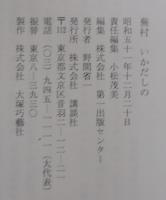 蕪村 いかだしの
昭和五十一年十二月二十日
責任編集 小松茂美
編集 株式会社 第一出版センター
発行者 野間省一
発行所 株式会社 講談社
〒112 東京都文京区音羽二―一二―二一
電話(〇三)九四五―一一一一(大代表)
振替 東京八―三九三〇
製作 株式会社 大塚巧藝社